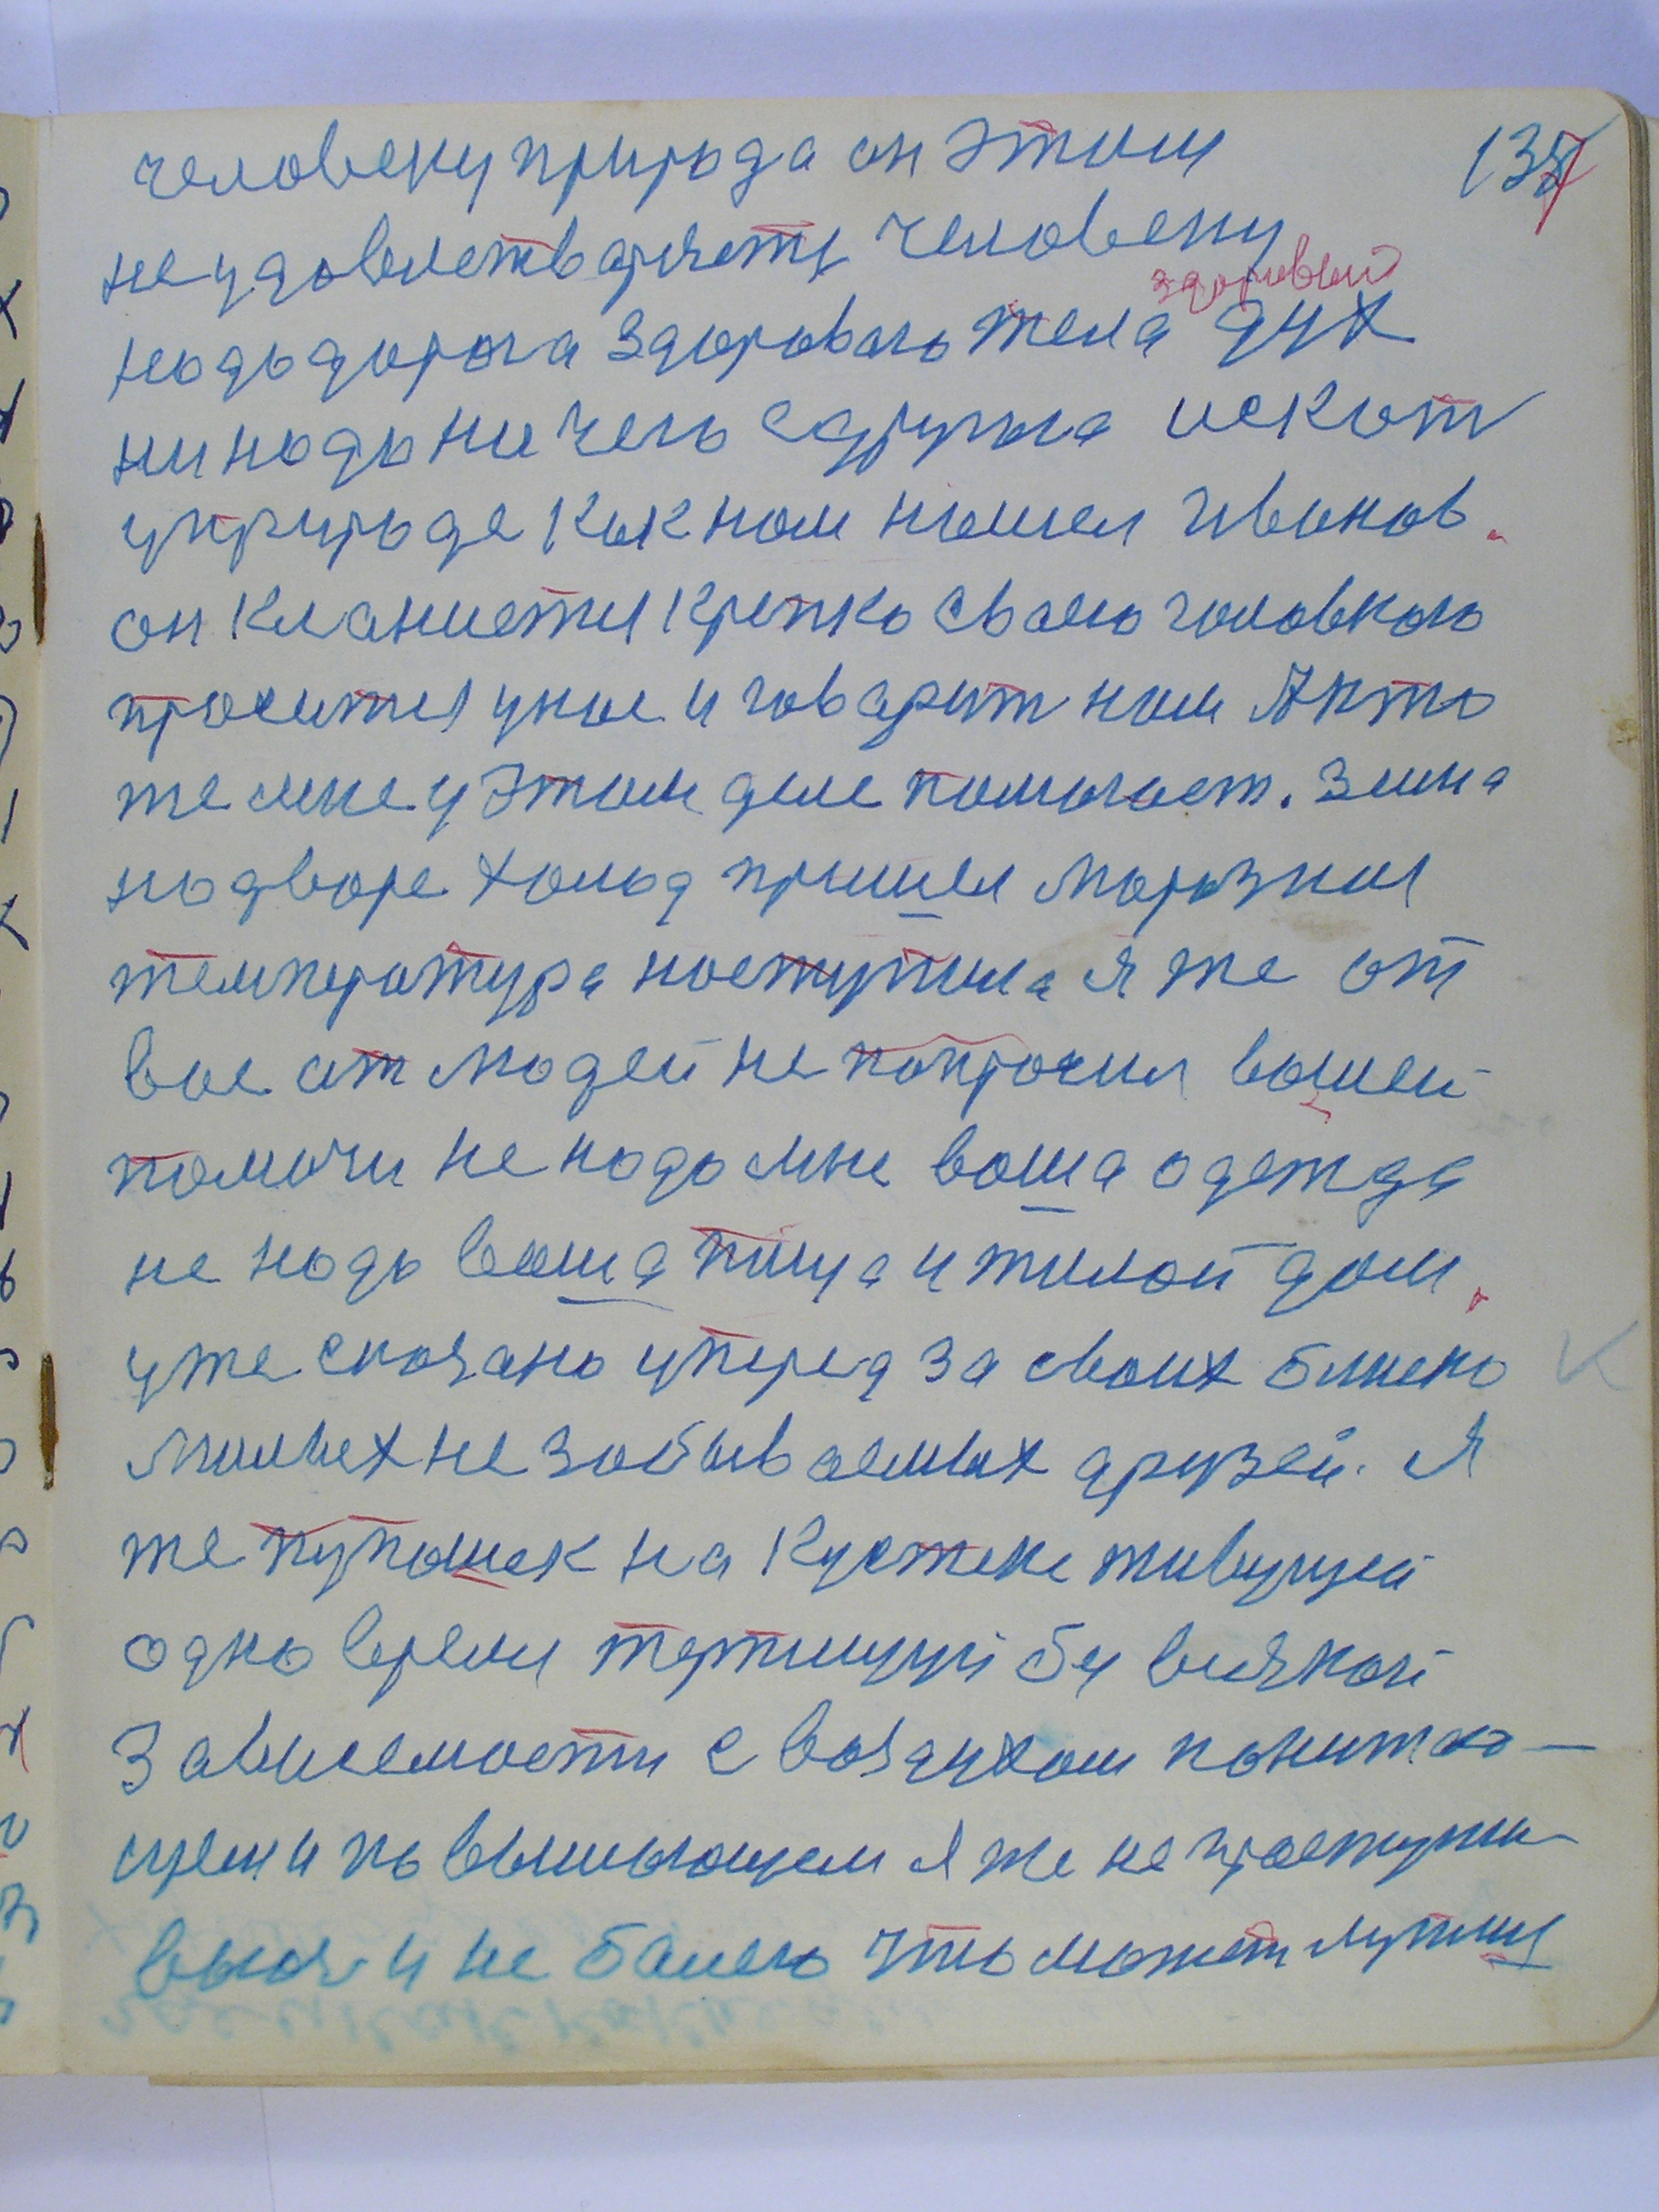 137
человеку природа он этим
не удовлетваряетя человеку
здоровый
надо дорога здороваго тела дух
ни надо ничего с друга искат
у природе как нам нашел Иванов.
он кланиетя крепко сваею головкаю
проситя у нас и говарит нам А кто
же мне у этом деле помагает. Зима
на дворе холод пришел марозная
температура наступила я же от
вас от людей не попрасил вашей
помочи не надо мне ваша одежда
не надо ваша пища и жилой дом.
уже сказано уперед за своих близко
милых не забываемых друзей. я
же купашек на кустеке живущей
одно время терпищуй бу всякой
зависемости с воздухом понижаю-
щем и повышающем я же не простужи-
ваюс и не балею что может лутши